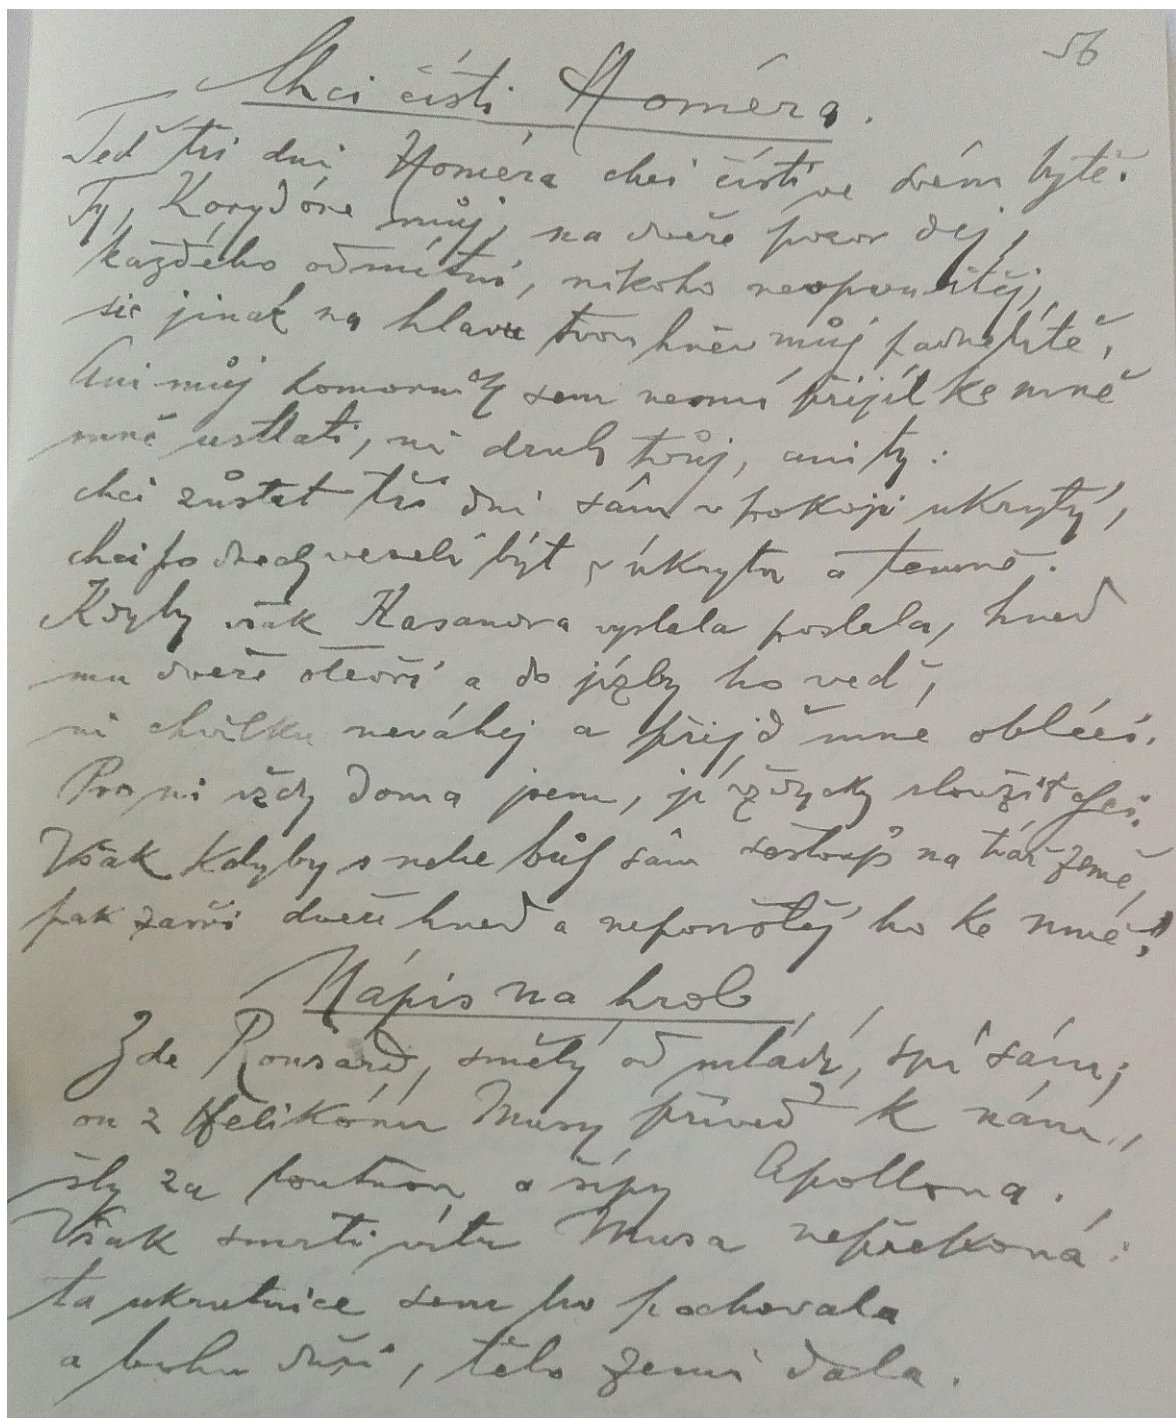 56
Chci čísti Homéra.
Teď tři dni Homéra chci čísti ve svém bytě.
Ty, Korydóne můj, na dveře pozor dej,
každého odmítni, nikoho neopouštěj,
sic jinak na hlavu tvou hněv můj padne hitě,
Ani můj komorník sem nesmí přijít ke mně
mně ustlati, ni druh tvůj, ani ty:
chci zůstat tři dni sám v pokoji ukrytý,
chci po veselí být v úkrytu a temně.
Kdyby však Kasandra vyslala poslala, hned
mu dveře otevři a do jizby ho veď,
ni chvilku neváhej a přijď mně obléci.
Pro ni vždy doma jsem, jí vždycky sloužit chci.
Však kdyby s nebe bůh sám sestoup na tvář země,
pak zavři dveře hned a nepouštěj ho ke mně!
Nápis na hrob
Zde Ronsard, smělý od mládí, spí sám;
on z Helikónu Musy přived k nám,
šly za loutnou a šípy Apollona.
Však smrti Musa nepřekoná:
ta ukrutnice sem ho pochovala
a bohu duši, tělo zemi dala.